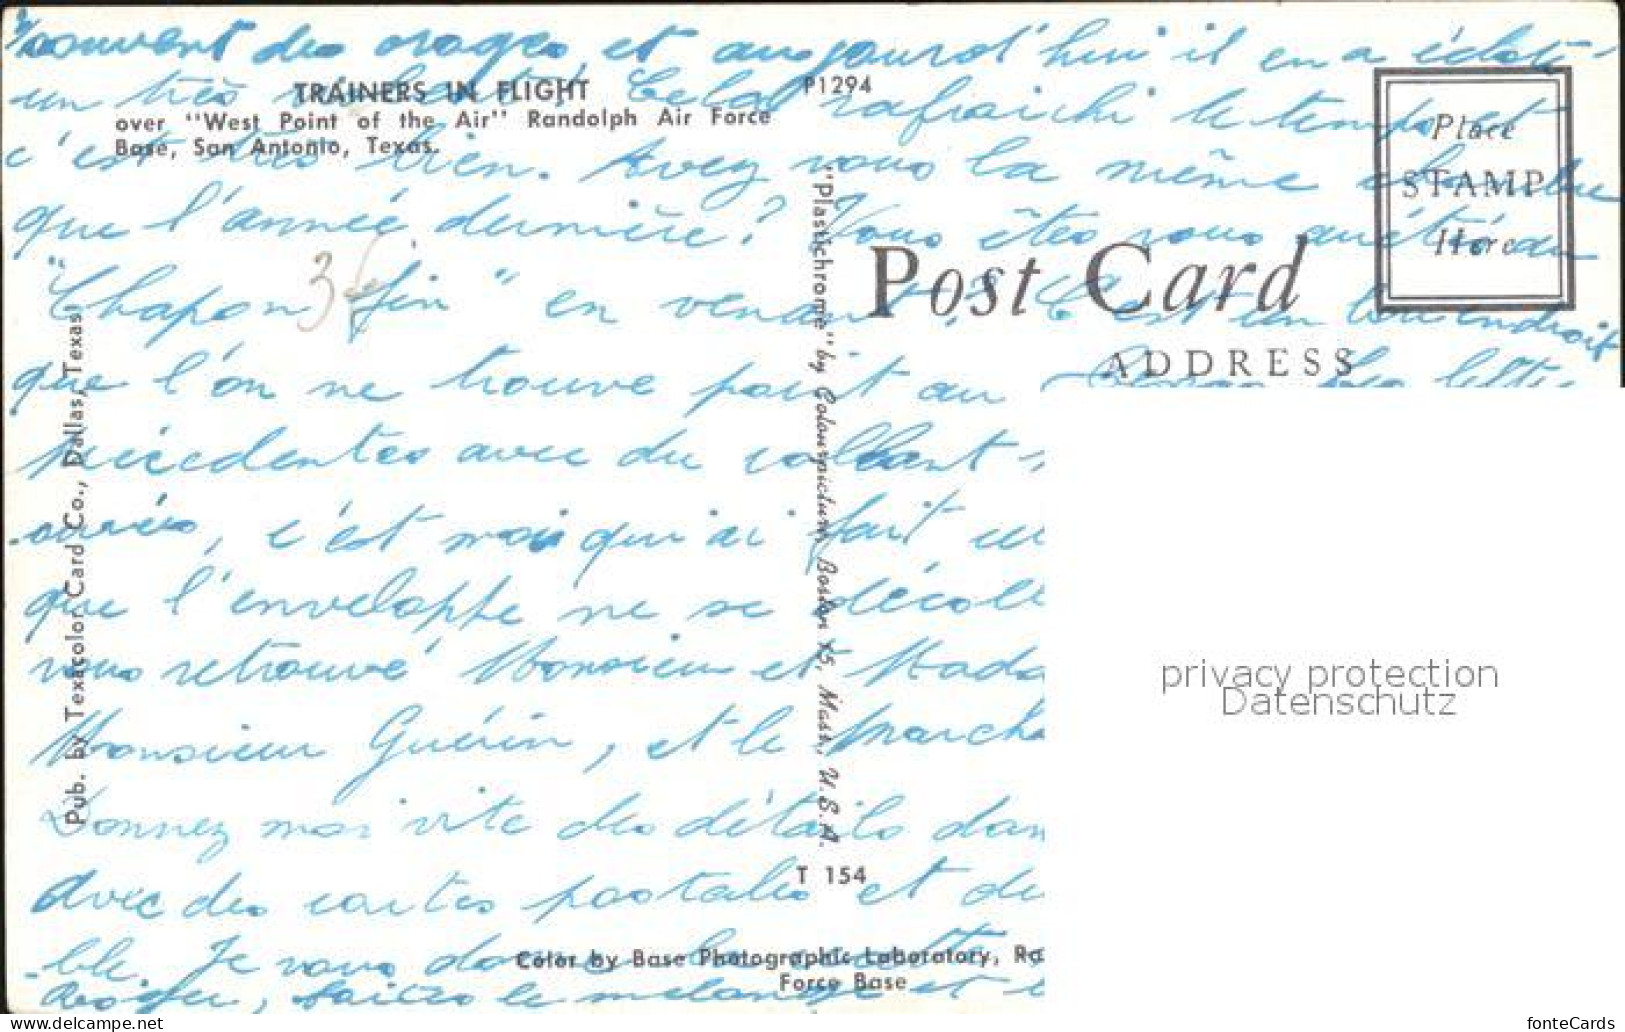 souvent des orages et aujourd'hui il en a éclaté
un très Cela rafraichi le temps et
c'est très bien. Avez vous la même chaleur
que l'année dernière? Vous êtes vous arrêté au
"Chapon fin" en venant? C'est un bon endroit
que l'on ne trouve point au
précédentes avec du collant
c'est moi qui ai fait
que l'enveloppe ne se
vous retrouvé Monsieur et
Monsieur Guérin, et le
Donnez moi vite des détails
avec des cartes postales et
-ble. Je vous
faites le mélange et
TRAINERS IN FLIGHT
over "West Point of the Air" Randolph Air Force
Base, San Antonio, Texas.
P1294
Place
STAMP
Here
Post Card
ADDRESS
Pub. by Texacolor Card Co., Dallas, Texas
"Plastichrome" by Colourpicture, Boston 15, Mass., U.S.A.
T 154
Color by Base Photographic Laboratory, Ra
Force Base
privacy protection
Datenschutz
https://www.delcampe.net/en_US/collectibles/store/fonteCards
fonteCards